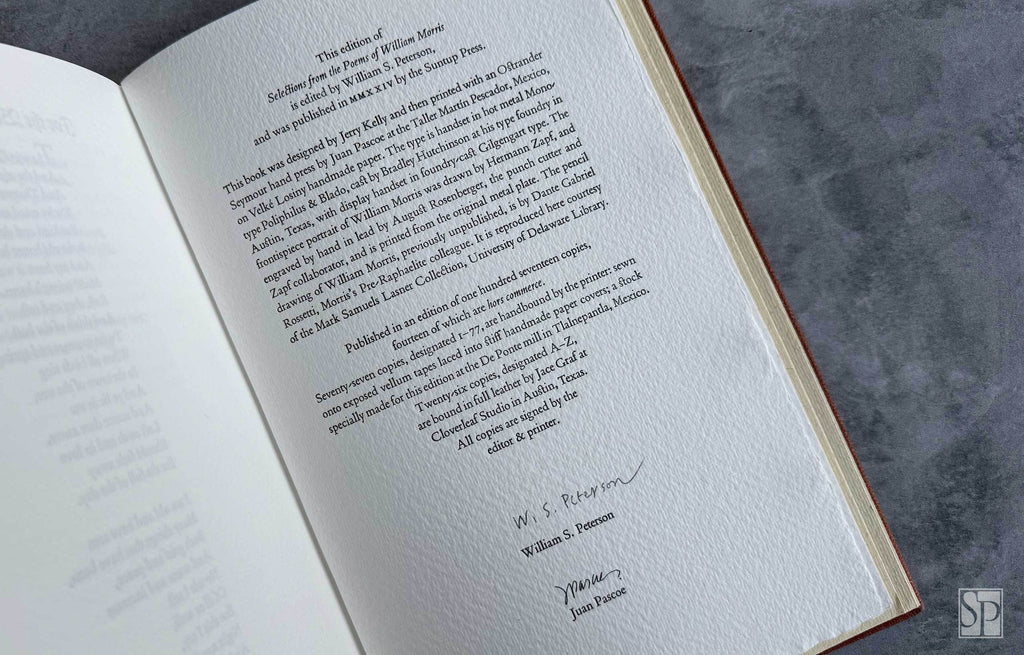 This edition of
Selections from the Poems of William Morris
is edited by William S. Peterson,
and was published in MMXXIV by the Suntup Press.
This book was designed by Jerry Kelly and then printed with an Ostrander
Seymour hand press by Juan Pascoe at the Taller Martín Pescador, Mexico,
on Velké Losiny handmade paper. The type is handset in hot metal Mono-
type Poliphilus & Blado, cast by Bradley Hutchinson at his type foundry in
Austin, Texas, with display handset in foundry-cast Gilgengart type. The
frontispiece portrait of William Morris was drawn by Hermann Zapf, and
engraved by hand in lead by August Rosenberger, the punch cutter and
Zapf collaborator, and is printed from the original metal plate. The pencil
drawing of William Morris, previously unpublished, is by Dante Gabriel
Rossetti, Morris's Pre-Raphaelite colleague. It is reproduced here courtesy
of the Mark Samuels Lasner Collection, University of Delaware Library.
Published in an edition of one hundred seventeen copies,
fourteen of which are hors commerce.
Seventy-seven copies, designated 1–77, are handbound by the printer: sewn
onto exposed vellum tapes laced into stiff handmade paper covers; a stock
specially made for this edition at the De Ponte mill in Tlalnepantla, Mexico.
Twenty-six copies, designated A–Z,
are bound in full leather by Jace Graf at
Cloverleaf Studio in Austin, Texas.
All copies are signed by the
editor & printer.
W. S. Peterson
William S. Peterson
Pascoe
Juan Pascoe
SP